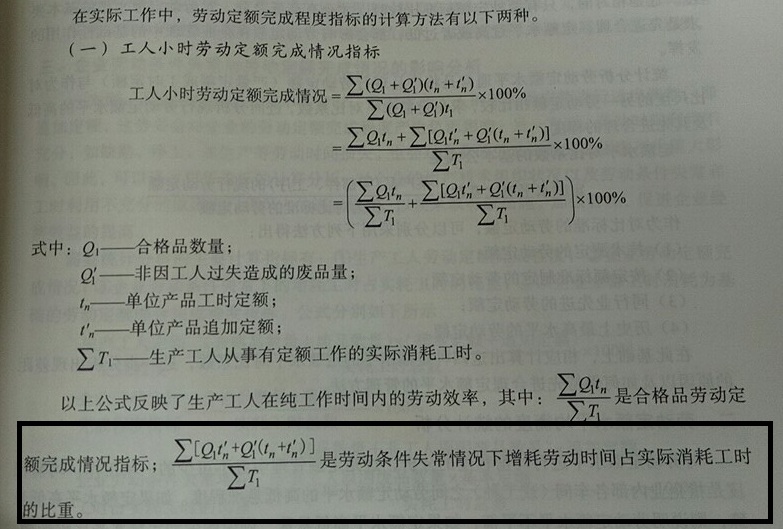 在实际工作中，劳动定额完成程度指标的计算方法有以下两种。
（一）工人小时劳动定额完成情况指标
工人小时劳动定额完成情况 = ∑(Q₁+Q₁′)(tₙ+tₙ′) / ∑(Q₁+Q₁′)t₁ ×100%
= ∑Q₁tₙ+∑[Q₁tₙ′+Q₁′(tₙ+tₙ′)] / ∑T₁ ×100%
= (∑Q₁tₙ / ∑T₁ + ∑[Q₁tₙ′+Q₁′(tₙ+tₙ′)] / ∑T₁) ×100%
式中：Q₁——合格品数量；
Q₁′——非因工人过失造成的废品量；
tₙ——单位产品工时定额；
t′ₙ——单位产品追加定额；
∑T₁——生产工人从事有定额工作的实际消耗工时。
以上公式反映了生产工人在纯工作时间内的劳动效率，其中：∑Q₁tₙ / ∑T₁ 是合格品劳动定
额完成情况指标；∑[Q₁tₙ′+Q₁′(tₙ+tₙ′)] / ∑T₁ 是劳动条件失常情况下增耗劳动时间占实际消耗工时
的比重。